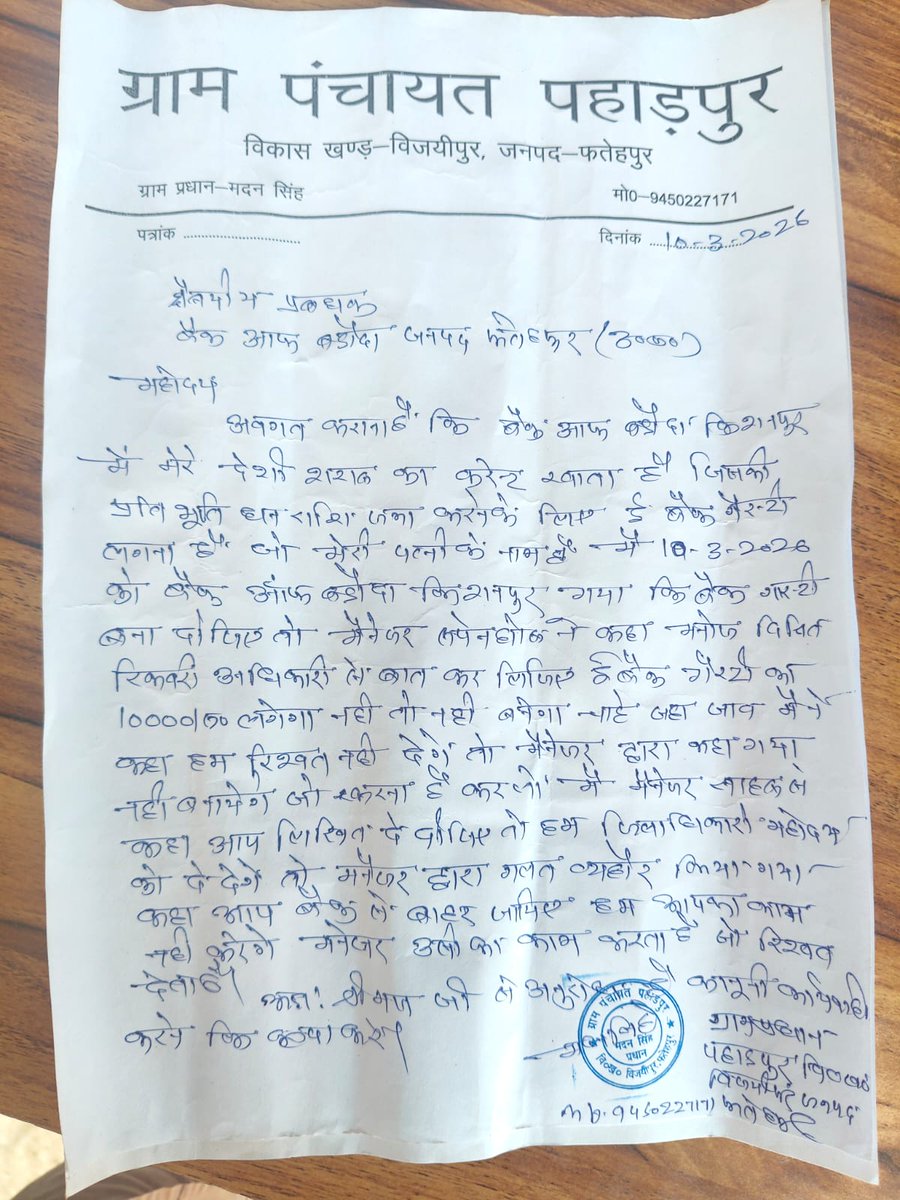 ग्राम पंचायत पहाड़पुर
विकास खण्ड़–विजयीपुर, जनपद–फतेहपुर
ग्राम प्रधान–मदन सिंह
मो0–9450227171
पत्रांक ..............................
दिनांक ....10-3-2026
क्षेत्रीय प्रबन्धक
बैंक आफ बडौदा जनपद फतेहपुर (उ०प्र०)
महोदय
अवगत कराना है कि बैंक आफ बडौदा किशनपुर
में मेरे देशी शराब का करेन्ट खाता है जिसकी
प्रतिभूति धनराशि जमा करने के लिए ई बैंक गैरन्टी
लगना है जो मेरी पत्नी के नाम है मैं 10-3-2026
को बैंक आफ बडौदा किशनपुर गया कि बैंक गारन्टी
बना दीजिए तो मैनेजर ने कहा मनोज
रिकवरी अधिकारी से बात कर लिजिए ई बैंक गैरन्टी का
10000/रू० लगेगा नही तो नही बनेगा चाहे जहा जाव मैने
कहा हम रिश्वत नही देगें तो मैनेजर द्वारा कहा गया
नही बनायेगे जो करना है कर लो मै मैनेजर साहब से
कहा आप लिखित दे दीजिए तो हम जिलाधिकारी महोदय
को दे देगे तो मैनेजर द्वारा गलत व्यहौर किया गया
कहा आप बैंक से बाहर जायिए हम आपका काम
नही करेगे मनेजर उसी का काम करता है जो रिश्वत
देता है।
अतः श्रीमान जी से है कानूनी कार्यवाही
करने कि कृपा करे।
ग्राम पंचायत पहाड़पुर
मदन सिंह
प्रधान
वि०ख० विजयीपुर, फतेहपुर
ग्रामप्रधान
पहाडपुर वि०ख०
विजयीपुर जनपद
फतेहपुर
mb. 9450227171